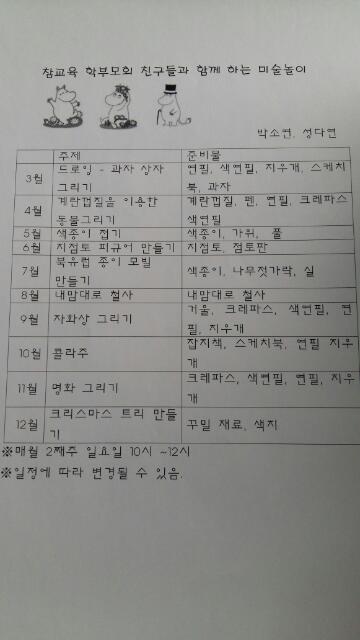 참교육 학부모회 친구들과 함께 하는 미술놀이
박소연, 성다연
주제 준비물
3월 드로잉 - 과자 상자 그리기 연필, 색연필, 지우개, 스케치북, 과자
4월 계란껍질을 이용한 동물그리기 계란껍질, 펜, 연필, 크레파스 색연필
5월 색종이 접기 색종이, 가위, 풀
6월 지점토 피규어 만들기 지점토, 점토판
7월 북유럽 종이 모빌 만들기 색종이, 나무젓가락, 실
8월 내맘대로 철사 내맘대로 철사
9월 자화상 그리기 거울, 크레파스, 색연필, 연필, 지우개
10월 콜라주 잡지책, 스케치북, 연필 지우개
11월 명화 그리기 크레파스, 색연필, 연필, 지우개
12월 크리스마스 트리 만들기 꾸밀 재료, 색지
※매월 2째주 일요일 10시 ~12시
※일정에 따라 변경될 수 있음.